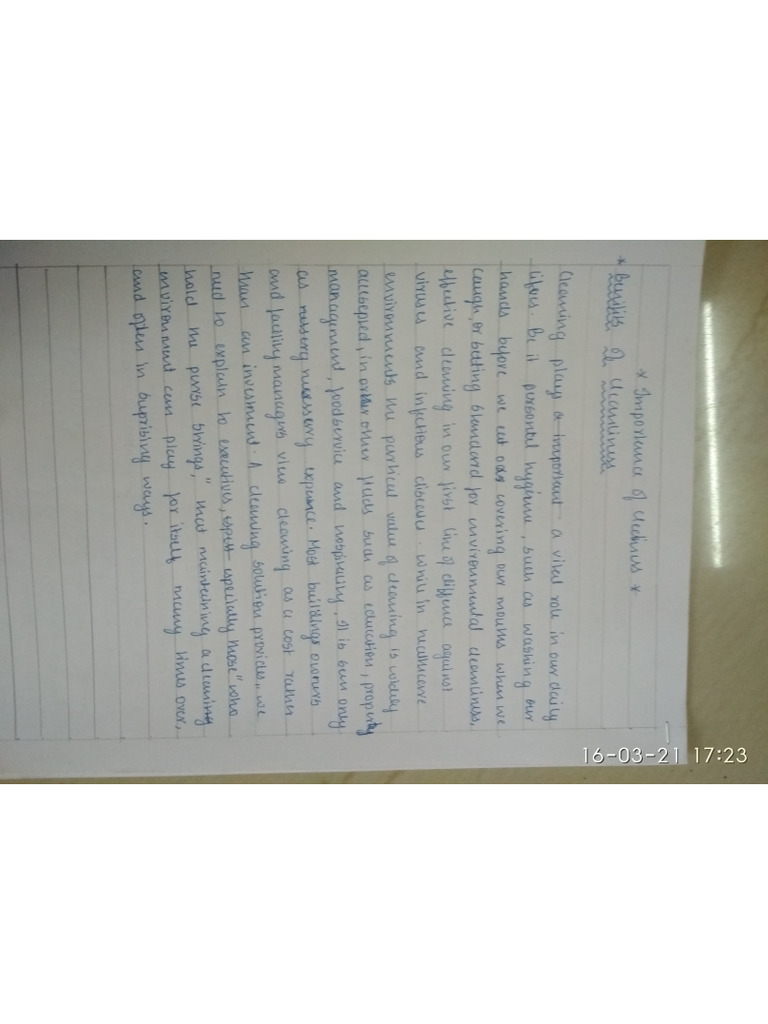 * Importence of cleeliness *
* Benifits of cleanliness
Cleaning plays a important a vital role in our daily
lifves. Be it personal hygine, such as washing our
hands before we eat or covering our mouths when we
caugh, or setting standard for environmental cleanliness,
effective cleaning in our first line of diffence against
viruses and infectious diseases. while in healthcare
environments the purtical value of cleaning is widely
accsepted, in order other fields such as education, property
management, foodservice and hospitality, It is seen only
as nessery nessessery expance. Most buildings owners
and facility managers view cleaning as a cost rather
than an investment. A cleaning solution provides, we
need to explain to executives, espest especially those "who
hold the purse strings," that maintaining a cleaning
environment can play for itself many times over,
and often in suprising ways.
1
16-03-21 17:23